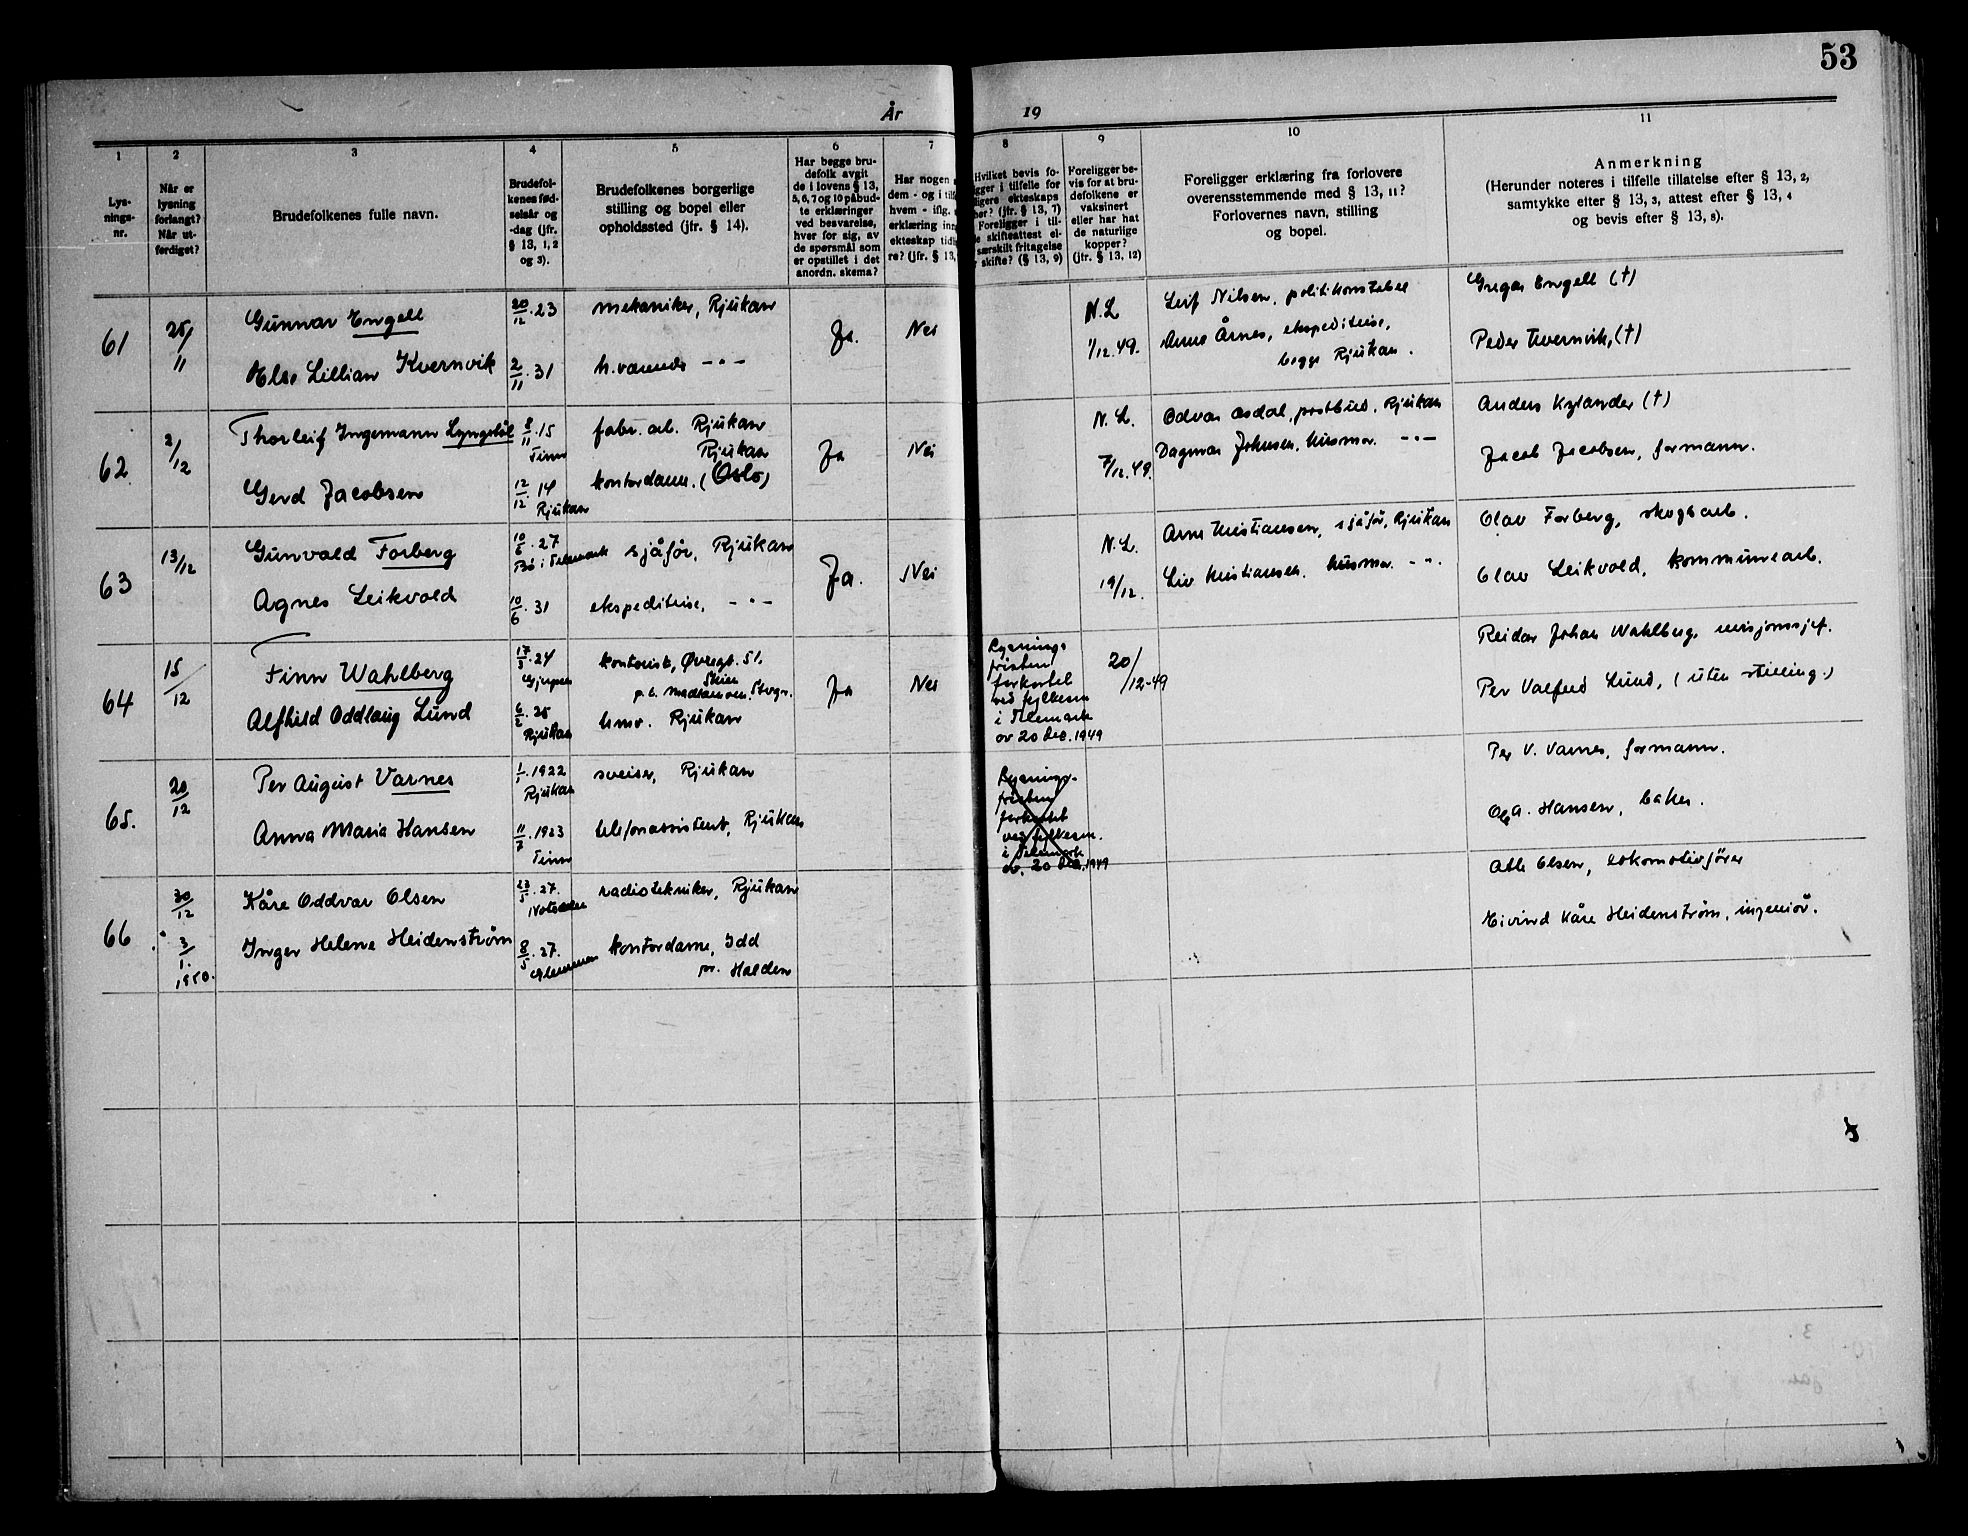 53
År 19
1 2 3 4 5 6 7 8 9 10 11
Lys-
nings-
nr.
Når er
lysning
forlangt?
Når ut-
ferdiget?
Brudefolkenes fulle navn.
Brudefol-
kenes fød-
selsår og
-dag (jfr.
§ 13, 1, 2
og 3).
Brudefolkenes borgerlige
stilling og bopel eller
opholdssted (jfr. § 14).
Har begge bru-
defolk avgit
de i lovens § 13,
5, 6, 7 og 10 påbud-
te erklæringer
ved besvarelse,
hver for sig, av
de spørsmål som
er opstillet i det
anordn. skema?
Har nogen
dem - og i til
hvem - iflg.
erklæring inn
ekteskap tid
re? (jfr. § 13,
Hvilket bevis fo-
gger i tilfelle for
ligere ekteskaps
her? (jfr. § 13, 7)
Foreligger i til-
e skifteattest el-
særskilt fritagelse
skifte? (§ 13, 9)
Foreligger be-
vis for at bru-
defolkene er
vaksinert
eller har hat
de naturlige
kopper?
(jfr. § 13, 12)
Foreligger erklæring fra forlovere
overensstemmende med § 13, 11?
Forlovernes navn, stilling
og bopel.
Anmerkning
(Herunder noteres i tilfelle tillatelse efter § 13, 2,
samtykke efter § 13, 3, attest efter § 13, 4
og bevis efter § 13, 8).
61
25/11
Gunnar Engell
20/12.23
mekaniker, Rjukan
Else Lillian Kvernvik
2/11.31
h.værende -"-
Ja.
Nei
N.L
1/12.49.
Leif Nilsen, politikonstabel
Anne Årnes, ekspeditrise,
begge Rjukan.
Gregar Engell (†)
Peder Kvernvik, (†)
62
2/12
Thorleif Ingemann Lyngstøl
8/11.15
Tinn
fabr. arb. Rjukan
Gerd Jacobsen
12/12.14
Rjukan
Rjukan
kontordame. (Oslo)
Ja
Nei
N.L.
7/12.49.
Odvar Åsdal, postbud, Rjukan
Dagmar Johnsen, husmor. -"-
Anders Kylander (†)
Jacob Jacobsen, formann.
63
13/12
Gunvald Forberg
10/6.27
Bø i Telemark
sjåfør, Rjukan
Agnes Leikvold
10/6.31
ekspeditrise, -"-
Ja.
Nei
N.L.
19/12.
Arne Kristiansen, sjåfør, Rjukan
Liv Kristiansen, husmor. -"-.
Olav Forberg, skogsarb.
Olav Leikvold, kommunearb.
64
15/12
Finn Wahlberg
17/3.24
Gjerpen
kontorist, Øvregt. 51.
Skien
Alfhild Oddlaug Lund
6/2.25
Rjukan
hmv. Rjukan
Ja
Nei
Lysnings-
fristen
forkortet
ved fylkesm.
i Telemark
av 20 des. 1949
20/12-49
Reidar Johan Wahlberg, revisjonssjef.
Per Valfred Lund, (uten stilling.)
65.
20/12
Per August Varnes
1/1.1922
Rjukan
sveiser, Rjukan
Anna Maria Hansen
11/7.1923
Tinn
telefonassistent, Rjukan
Lysnings-
fristen
forkortet
ved fylkesm.
i Telemark
av. 20 des. 1949
Per V. Varnes, formann.
Hansen, baker.
66
30/12
3/1.
1950.
Kåre Oddvar Olsen
23/5.27.
Notodden
radiotekniker, Rjukan
Inger Helene Heidenstrøm
8/5.27.
Glemmen
kontordame, Idd
pr. Halden
Atle Olsen, lokomotivfører
Eivind Kåre Heidenstrøm, ingeniør.